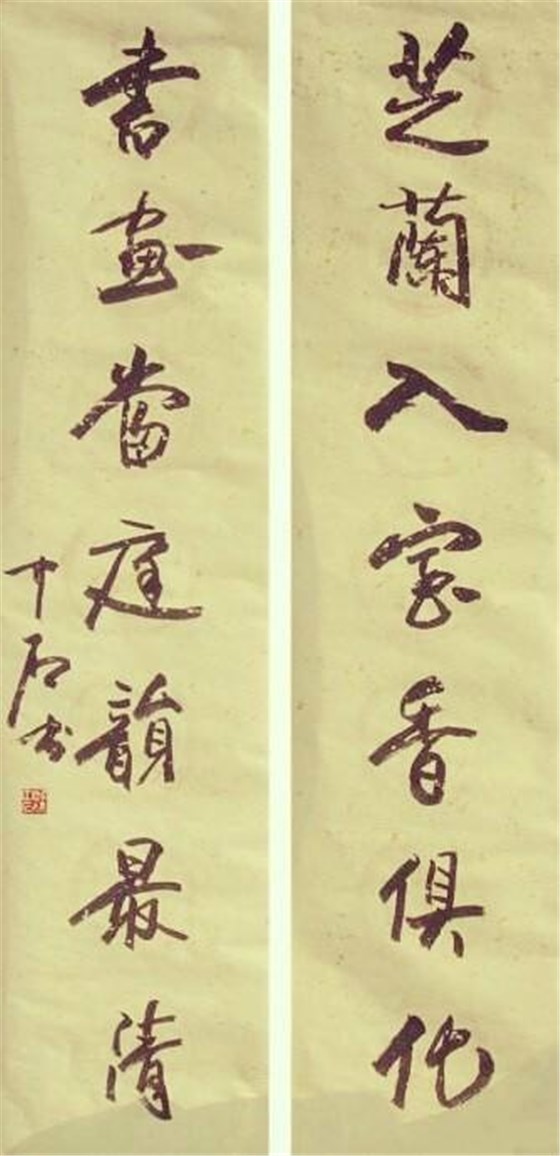 芝蘭入室香俱化
書畫當庭韻最清
石书